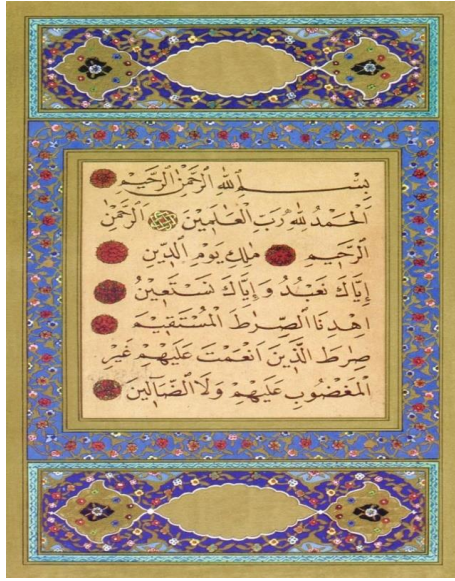 بِسْمِ ٱللهِ ٱلرَّحْمٰنِ ٱلرَّحِيمِ
اَلْحَمْدُ لِلهِ رَبِّ الْعَالَمِينَ اَلرَّحْمٰنِ
الرَّحِيمِ مٰلِكِ يَوْمِ الدِّينِ
إِيَّاكَ نَعْبُدُ وَإِيَّاكَ نَسْتَعِينُ
اِهْدِنَا الصِّرَاطَ الْمُسْتَقِيمَ
صِرَاطَ الَّذِينَ اَنْعَمْتَ عَلَيْهِمْ غَيْرِ
الْمَغْضُوبِ عَلَيْهِمْ وَلَا الضَّالِّينَ